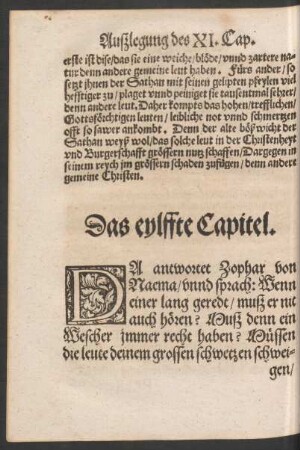 Außlegung des XI. Cap.
erste ist dise/das sie eine weiche/blöde/vnnd zartere na⸗
tur denn andere gemeine leut haben. Fürs ander/so
setzt jhnen der Sathan mit seinen gelipten pfeylen viel
hefftiger zu/plaget vnnd peiniget sie tausentmal sehrer/
denn andere leut. Daher kompts das hohen/trefflichen/
Gottsförchtigen leuten/leibliche not vnnd schmertzen
offt so sawer ankombt. Denn der alte bößwicht der
Sathan weyß wol/das solche leut in der Christenheyt
vnd Burgerschafft grössern nutz schaffen/Dargegen in
seinem reych jm grössern schaden zufügen/denn andere
gemeine Christen.
Das eylffte Capitel.
DA antwortet Zophar von
Naema/vnnd sprach: Wenn
einer lang geredt/muß er nit
auch hören? Muß denn ein
Wescher jmmer recht haben? Müssen
die leute deinem grossen schwetzen schwei⸗
gen/